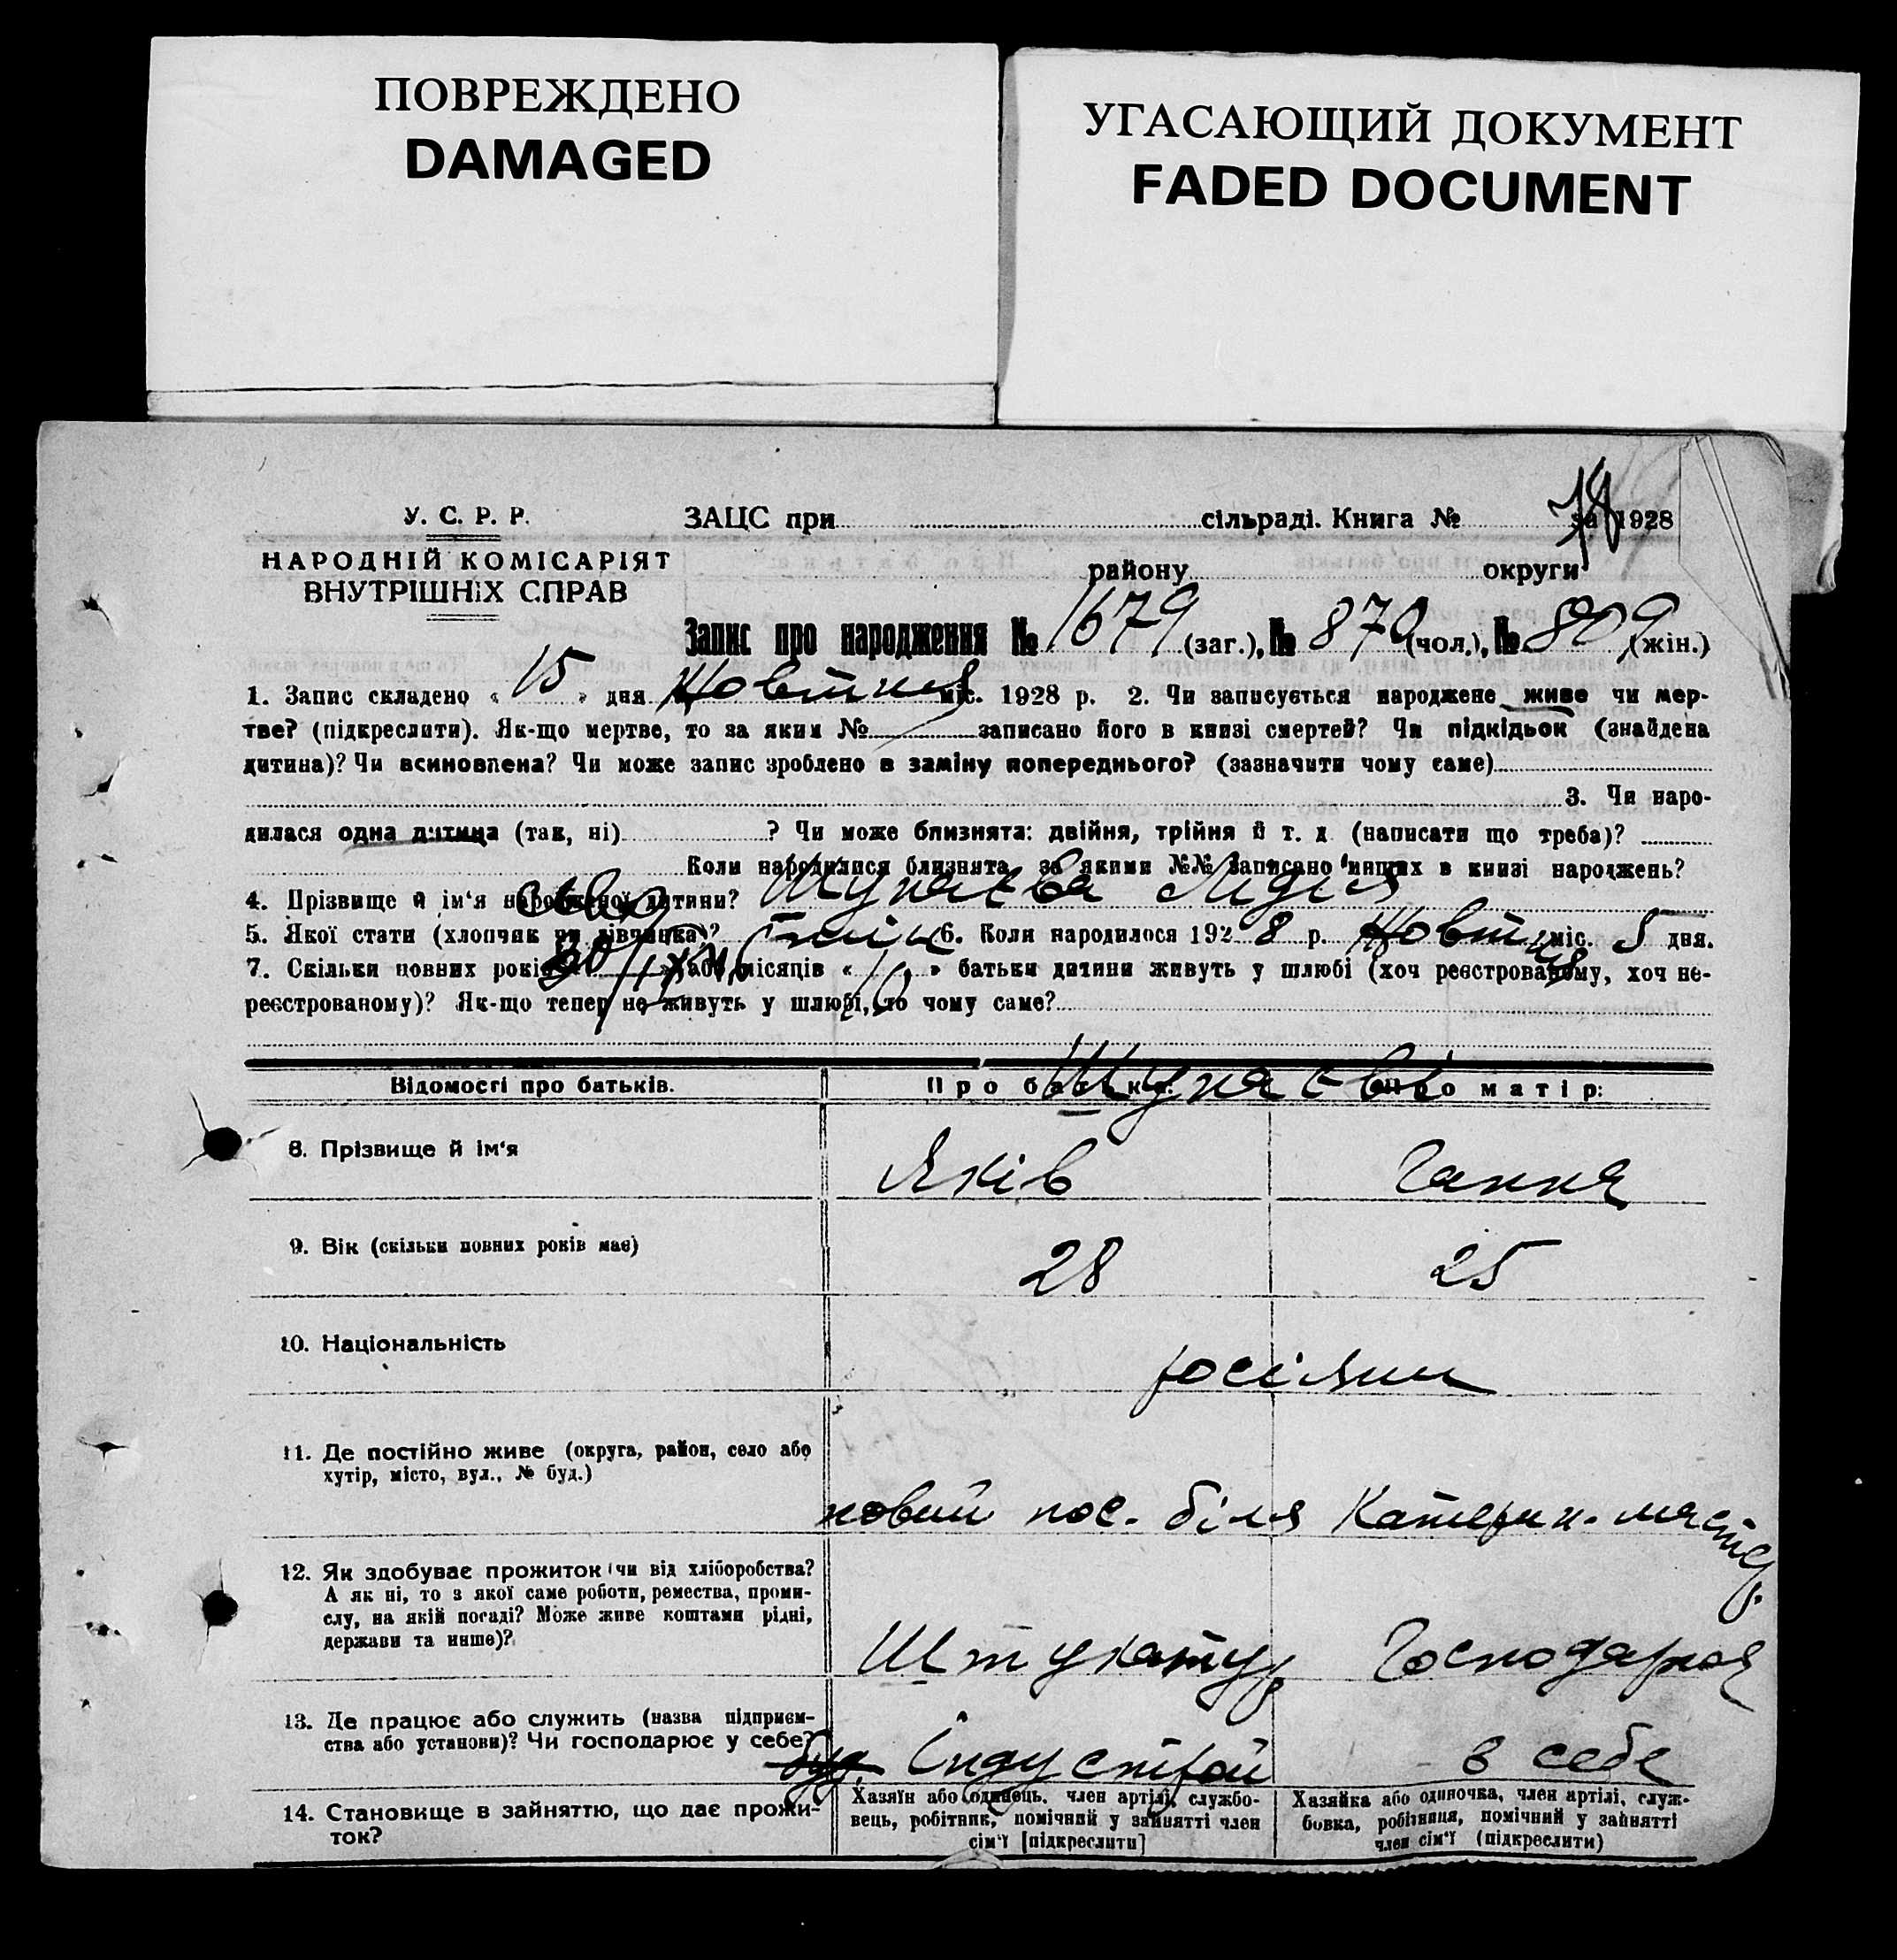 ПОВРЕЖДЕНО
DAMAGED
УГАСАЮЩИЙ ДОКУМЕНТ
FADED DOCUMENT
У. С. Р. Р.
НАРОДНІЙ КОМІСАРІЯТ
ВНУТРІШНІХ СПРАВ
ЗАЦС при сільраді. Книга № за 1928
району округи
Запис про народження № 1679 (заг.), № 870 (чол.), № 809 (жін.)
1. Запис складено « 15 » дня Жовтня міс. 1928 р. 2. Чи записується народжене живе чи мер-
тве? (підкреслити). Як-що мертве, то за яким № записано його в книзі смертей? Чи підкідьок (знайдена
дитина)? Чи всиновлена? Чи може запис зроблено в заміну попереднього? (зазначити чому саме)
3. Чи наро-
дилася одна дитина (так, ні) ? Чи може близнята: двійня, трійня й т. д (написати що треба)?
Коли народилися близнята, за якими №№ записано инших в книзі народжень?
4. Прізвище й ім'я народженої дитини? Лідія
5. Якої стати (хлопчик чи дівчинка)? 6. Коли народилося 192 8 р. Жовтня міс. 5 дня.
7. Скільки повних років або місяців « » батьки дитини живуть у шлюбі (хоч реєстрованому, хоч не-
реєстрованому)? Як-що тепер не живуть у шлюбі, то чому саме?
Відомості про батьків.
Про батька:
Про матір:
8. Прізвище й ім'я
Яків
Ганна
9. Вік (скільки повних років має)
28
25
10. Національність
росіяни
11. Де постійно живе (округа, район, село або
хутір, місто, вул., № буд.)
новий пос. біля Катерин. мастер.
12. Як здобуває прожиток (чи від хліборобства?
А як ні, то з якої саме роботи, ремества, проми-
слу, на якій посаді? Може живе коштами рідні,
держави та инше)?
Штукатур
Господарка
13. Де працює або служить (назва підприєм-
ства або установи)? Чи господарює у себе?
буд. Індустрой
в себе
14. Становище в зайняттю, що дає прожи-
ток?
Хазяїн або одинець, член артілі, службо-
вець, робітник, помічний у зайнятті член
сім'ї [підкреслити]
Хазяйка або одиночка, член артілі, служ-
бовка, робітниця, помічний у зайнятті
член сім'ї (підкреслити)